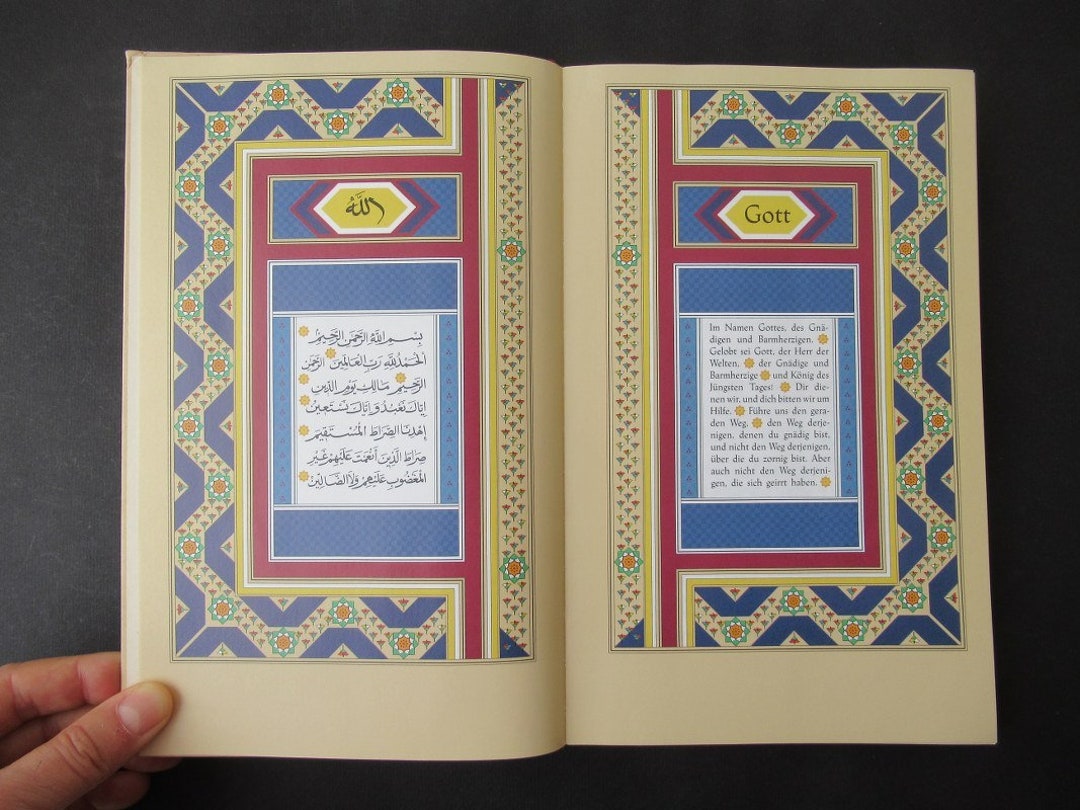 الله
بِسْمِ اللَّهِ الرَّحْمَنِ الرَّحِيمِ
الْحَمْدُ لِلَّهِ رَبِّ الْعَالَمِينَ الرَّحْمَنِ
الرَّحِيمِ مَالِكِ يَوْمِ الدِّينِ
إِيَّاكَ نَعْبُدُ وَإِيَّاكَ نَسْتَعِينُ
إِهْدِنَا الصِّرَاطَ الْمُسْتَقِيمَ
صِرَاطَ الَّذِينَ أَنْعَمْتَ عَلَيْهِمْ غَيْرِ
الْمَغْضُوبِ عَلَيْهِمْ وَلَا الضَّالِّينَ
Gott
Im Namen Gottes, des Gnä-
digen und Barmherzigen.
Gelobt sei Gott, der Herr der
Welten, der Gnädige und
Barmherzige und König des
Jüngsten Tages! Dir die-
nen wir, und dich bitten wir um
Hilfe. Führe uns den gera-
den Weg, den Weg derje-
nigen, denen du gnädig bist,
und nicht den Weg derjenigen,
über die du zornig bist. Aber
auch nicht den Weg derjeni-
gen, die sich geirrt haben.